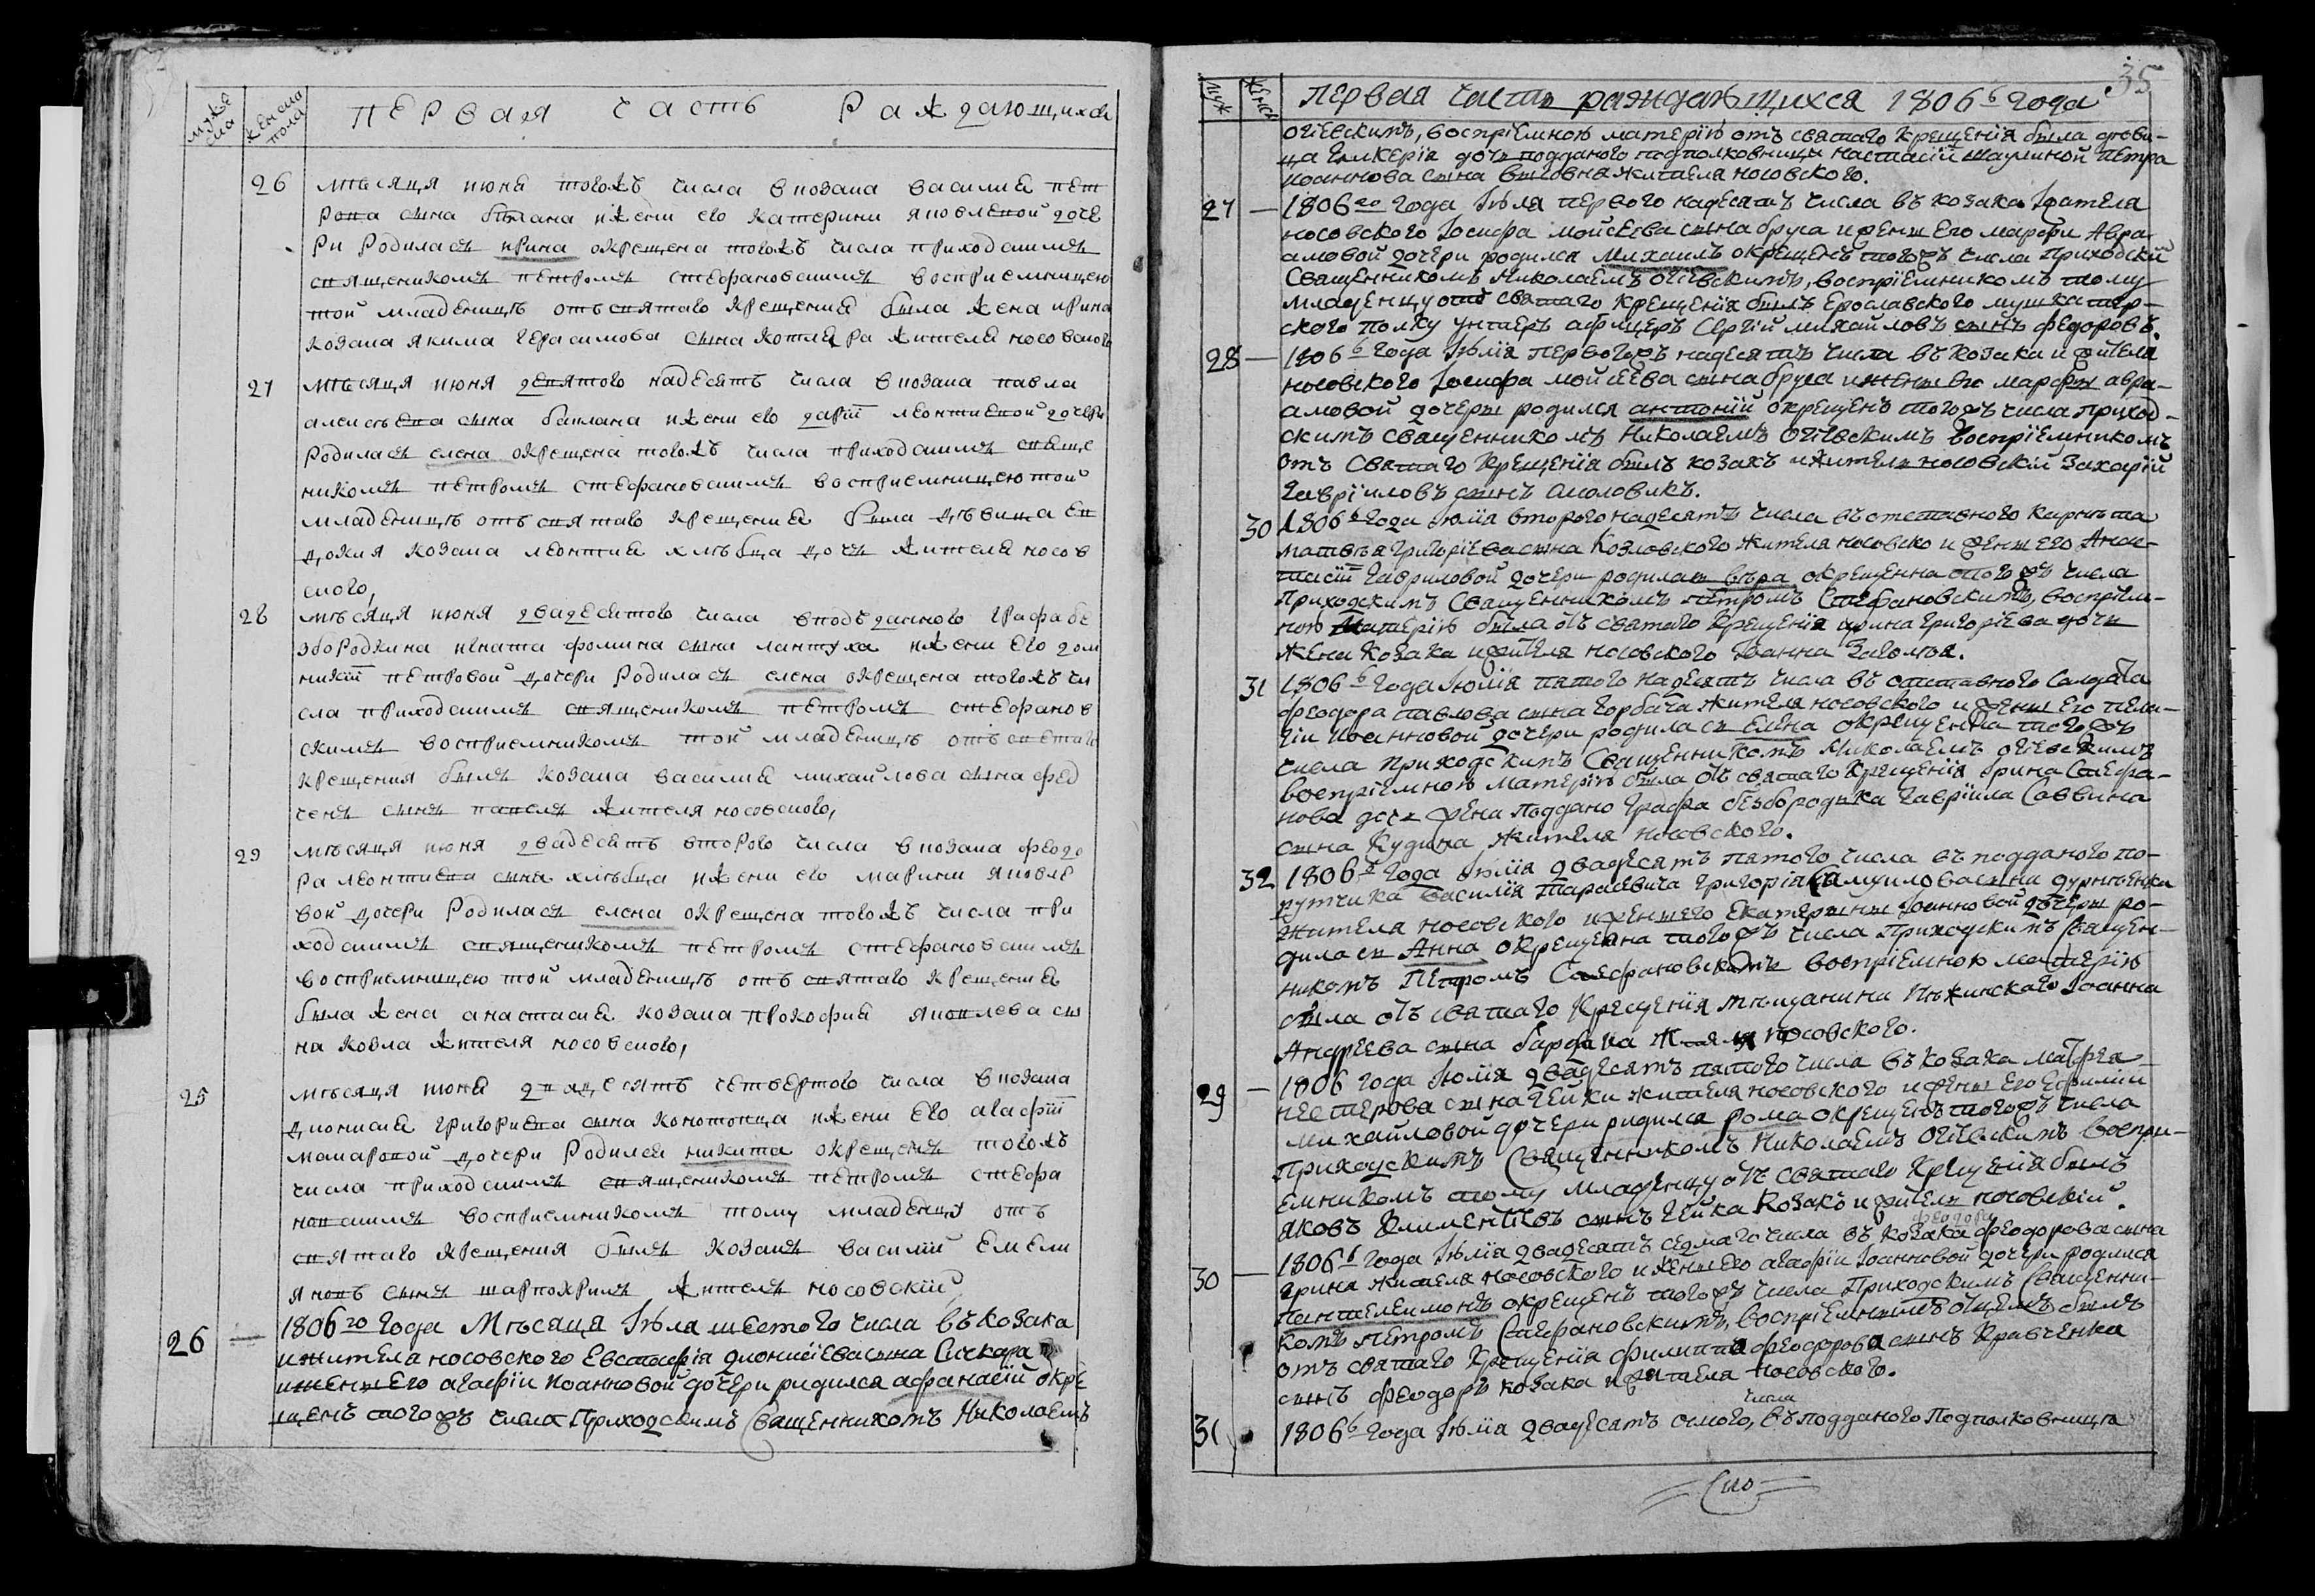 мужеска
женска пола
ПЕРВАЯ ЧАСТЬ РАЖДАЮЩИХСЯ
26 мѣсяца июня тогожъ числа в козака василия пет
рова сына баклана ижени его катерини яковлевой доче
ри родилась ирина окрещена тогожъ числа приходскимъ
священикомъ петромъ стефановскимъ восприемницею
той младеницѣ отъ святаго крещения была жена ирина
козака якима герасимова сына жителя носовского
27 мѣсяца июня девятого надесять числа в козака павла
алексѣева сына баклана ижени его дарїи леонтиевой дочери
родилась елена окрещена тогожъ числа приходскимъ свяще
никомъ петромъ стефановскимъ восприемницею той
младеницѣ отъ святаго крещения была дѣвица ев
докия козака леонтия хлѣбца дочь жителя носов
ского,
28 мѣсяца июня двадесятого числа в подъданного графа бе
збородкина игната фомина сына лантуха ижени его дом
никїи петровой дочери родилась елена окрещена тогожъ чи
сла приходскимъ священикомъ петромъ стефанов
скимъ восприемникомъ той младеницѣ отъ святаго
крещения былъ козака василия михайлова сына фед
ченъ сынъ павелъ жителя носовского,
29 мѣсяца июня двадесять второго числа в козака феодо
ра леонтиева сына хлѣбца ижени его марини яковле
вой дочери родилась елена окрещена тогожъ числа при
ходскимъ священикомъ петромъ стефановскимъ
восприемницею той младеницѣ отъ святаго крещения
была жена анастасия козака прокофия яковлева сы
на козла жителя носовского,
25 мѣсяца июня двадесять четвертого числа в козака
дионисия григориева сына конотопца ижени его агафїи
макаровой дочери родился никита окрещенъ тогожъ
числа приходскимъ священикомъ петромъ стефа
новскимъ восприемникомъ тому младенцу отъ
святаго крещения былъ козакъ василий емели
яновъ сынъ жителъ носовскїй
26 — 1806го Года Мѣсяца Iюля шестого числа въ козака
ижителя носовского Евстафiя дионисiева сына
иженыего агафiи иоанновой дочери родился афанасiй окре
щенъ тогожъ числа Приходскимъ Священникомъ Николаемъ
35
муж
женск
Первая часть раждающихся 1806го года
огiевскимъ, воспрiемною матерiю отъ святаго крещенiя была дѣви-
ца Гликерiя дочь подданого подполковницы настасiи петра
иоаннова сына жителя носовского.
27 — 1806го года Iюля первого надесять числа въ козака жителя
носовского Iосифа мойсеева сына бруса ижены его марфы Авра
амовой дочери родился Михаилъ окрещенъ тогожъ числа Приходскiй
Священникомъ Николаемъ огiевскимъ, воспрiемникомъ тому
младенцу отъ святаго крещенiя былъ Ерославского мушкатер-
ского полку унтеръ афицеръ Сергiй михайловъ сынъ федоровъ.
28 — 1806го года Iюлiя первогожъ надесять числа въ козака и жителя
носовского Iосифа мойсеева сына бруса иженыего марфы авра-
амовой дочеры родился антонiй окрещенъ тогожъ числа приход-
скимъ священникомъ Николаемъ огiевскимъ воспрiемникомъ
отъ Святаго крещенiя былъ козакъ ижитель носовскiй Захарiй
Гаврiиловъ сынъ смоловикъ.
30 1806го года Iюлiя второго надесять числа въ отставного
матвѣя григорiева сына Козловского жителя носовско и жены его Анас-
тасiи гавриловой дочери родилась вѣра окрещенна тогожъ числа
Приходскимъ Священникомъ петромъ Стефановскимъ, воспрiем-
ною Матерiю была отъ святаго крещенiя ирина григорiева дочь
жена козака ижителя носовского Iоанна
31 1806го года Iюлiя пятого надесять числа въ отставного Салдата
феодора павлова сына горбача жителя носовского и жены его пела-
гiи иоанновой дочери родилась Елена окрещенна тогожъ
числа приходскимъ Священникомъ Николаемъ огiевскимъ
воспрiемною матерiю была отъ святаго крещенiя Iрина Стефа-
нова дочь жена поддано графа безбородька Гаврiила Саввина
сына Кудина жителя носовского.
32 1806го года Iюлiя двадесять пятого числа въ подданого по-
рутчика василiя тарасевича григорiя Самуилова сына
жителя носовского иженыего Екатерыны Iоанновой дочеры ро-
дилась Анна окрещенна тогожъ числа Приходскимъ Священ-
никомъ Петромъ Стефановскимъ воспрiемною матерiю
была отъ святаго крещенiя мѣщанина Нѣжинского Iоанна
Андреева сына носовского.
29 — 1806 года Iюлiя двадесять пятого числа въ козака матфея
нестерова сына гейки жителя носовского ижены его Ефимiи
михайловой дочери родился рома окрещенъ тогожъ числа
приходскимъ Священникомъ Николаемъ Огiевскимъ воспри-
емникомъ тому младенцу отъ святаго крещенiя былъ
яковъ Климентiевъ сынъ гейка козакъ ижитель носовскiй.
30 — 1806го года Iюлiя двадесять седмаго числа въ козака феодора феодорова сына
грина жителя носовского иженыего агафiи Iоанновой дочери родился
пантелеимонъ окрещенъ тогожъ числа Приходскимъ Священни-
комъ петромъ Стефановскимъ, воспрiемнымъ отцемъ былъ
отъ святаго крещенiя филиппа феодорова сынъ Кравченка
сынъ феодоръ козака ижителя носовского.
31 1806го года Iюлiя двадесять осмого числа, въ подданого Подполковница